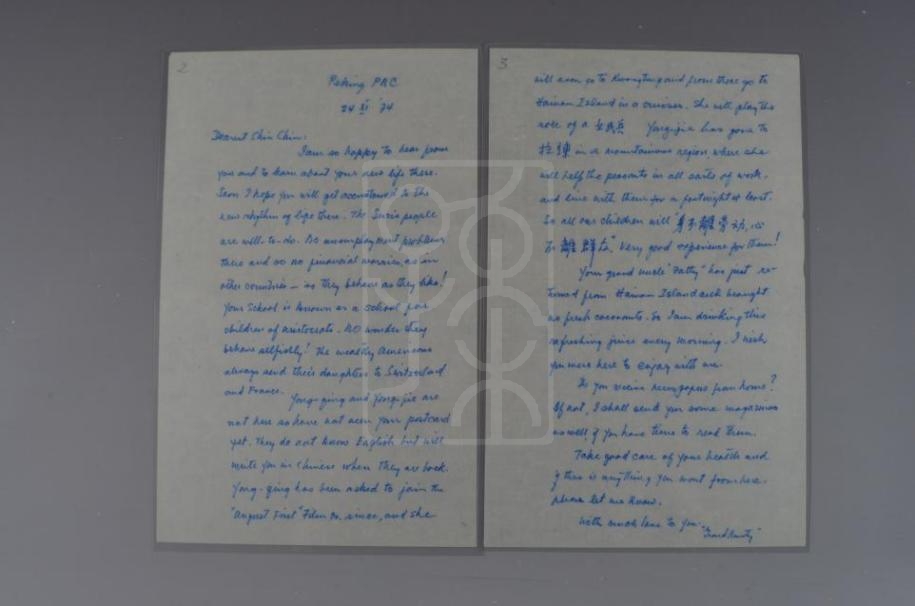 2
Peking PRC
24 XI '74
Dearest Shin Chin:
I am so happy to hear from
you and to learn about your new life there.
Soon I hope you will get accustomed to the
new rhythm of life there. The Swiss people
are well-to-do. No unemployment problems
there and so no financial worries, as in
other countries — so they behave as they like!
Your School is known as a school for
children of aristocrats. No wonder they
behave selfishly! The wealthy Americans
always send their daughters to Switzerland
and France.
Yong-ging and Yong-jie are
not here so have not seen your postcard
yet. They do not know English but will
write you in Chinese when they are back.
Yong-ging has been asked to join the
"August First" Film Co. since, and she
3
will soon go to Kwangtung and from there go to
Hainan Island in a cruiser. She will play the
role of a 女民兵 Yong-jie has gone to
拉練 in a mountainous region, where she
will help the peasants in all sorts of work.
and live with them for a fortnight at least.
So all our children will "身不離劳动, 心
不離群众" Very good experience for them!
Your grand uncle "Patty" has just re-
turned from Hainan Island and brought
us fresh coconuts. So I am drinking this
refreshing juice every morning. I wish
you were here to enjoy with me.
Do you receive newspapers from home?
If not, I shall send you some magazines
as well, if you have time to read them.
Take good care of your health and
if there is anything you want from here,
please let me know.
With much love to you.